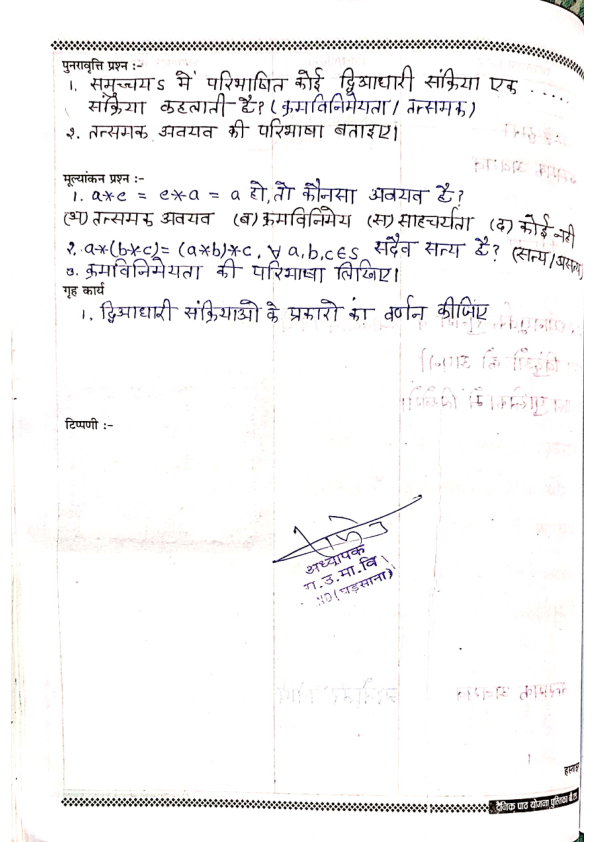 पुनरावृत्ति प्रश्न :-
1. समुच्चय S में परिभाषित कोई द्विआधारी संक्रिया एक .....
संक्रिया कहलाती है? (क्रमविनिमेयता / तत्समक)
२. तत्समक अवयव की परिभाषा बताइए।
मूल्यांकन प्रश्न :-
1. a*e = e*a = a हो, तो कौनसा अवयव है?
(अ) तत्समक अवयव (ब) क्रमविनिमेय (स) साहचर्यता (द) कोई नही
२. a*(b*c)= (a*b)*c, ∀ a,b,c∈S सदैव सत्य है? (सत्य/असत्य)
३. क्रमविनिमेयता की परिभाषा लिखिए।
गृह कार्य
1. द्विआधारी संक्रियाओ के प्रकारो का वर्णन कीजिए
टिप्पणी :-
अध्यापक
रा.उ.मा.वि
(घड़साना)
दैनिक पाठ योजना पुस्तिका बी.एड.